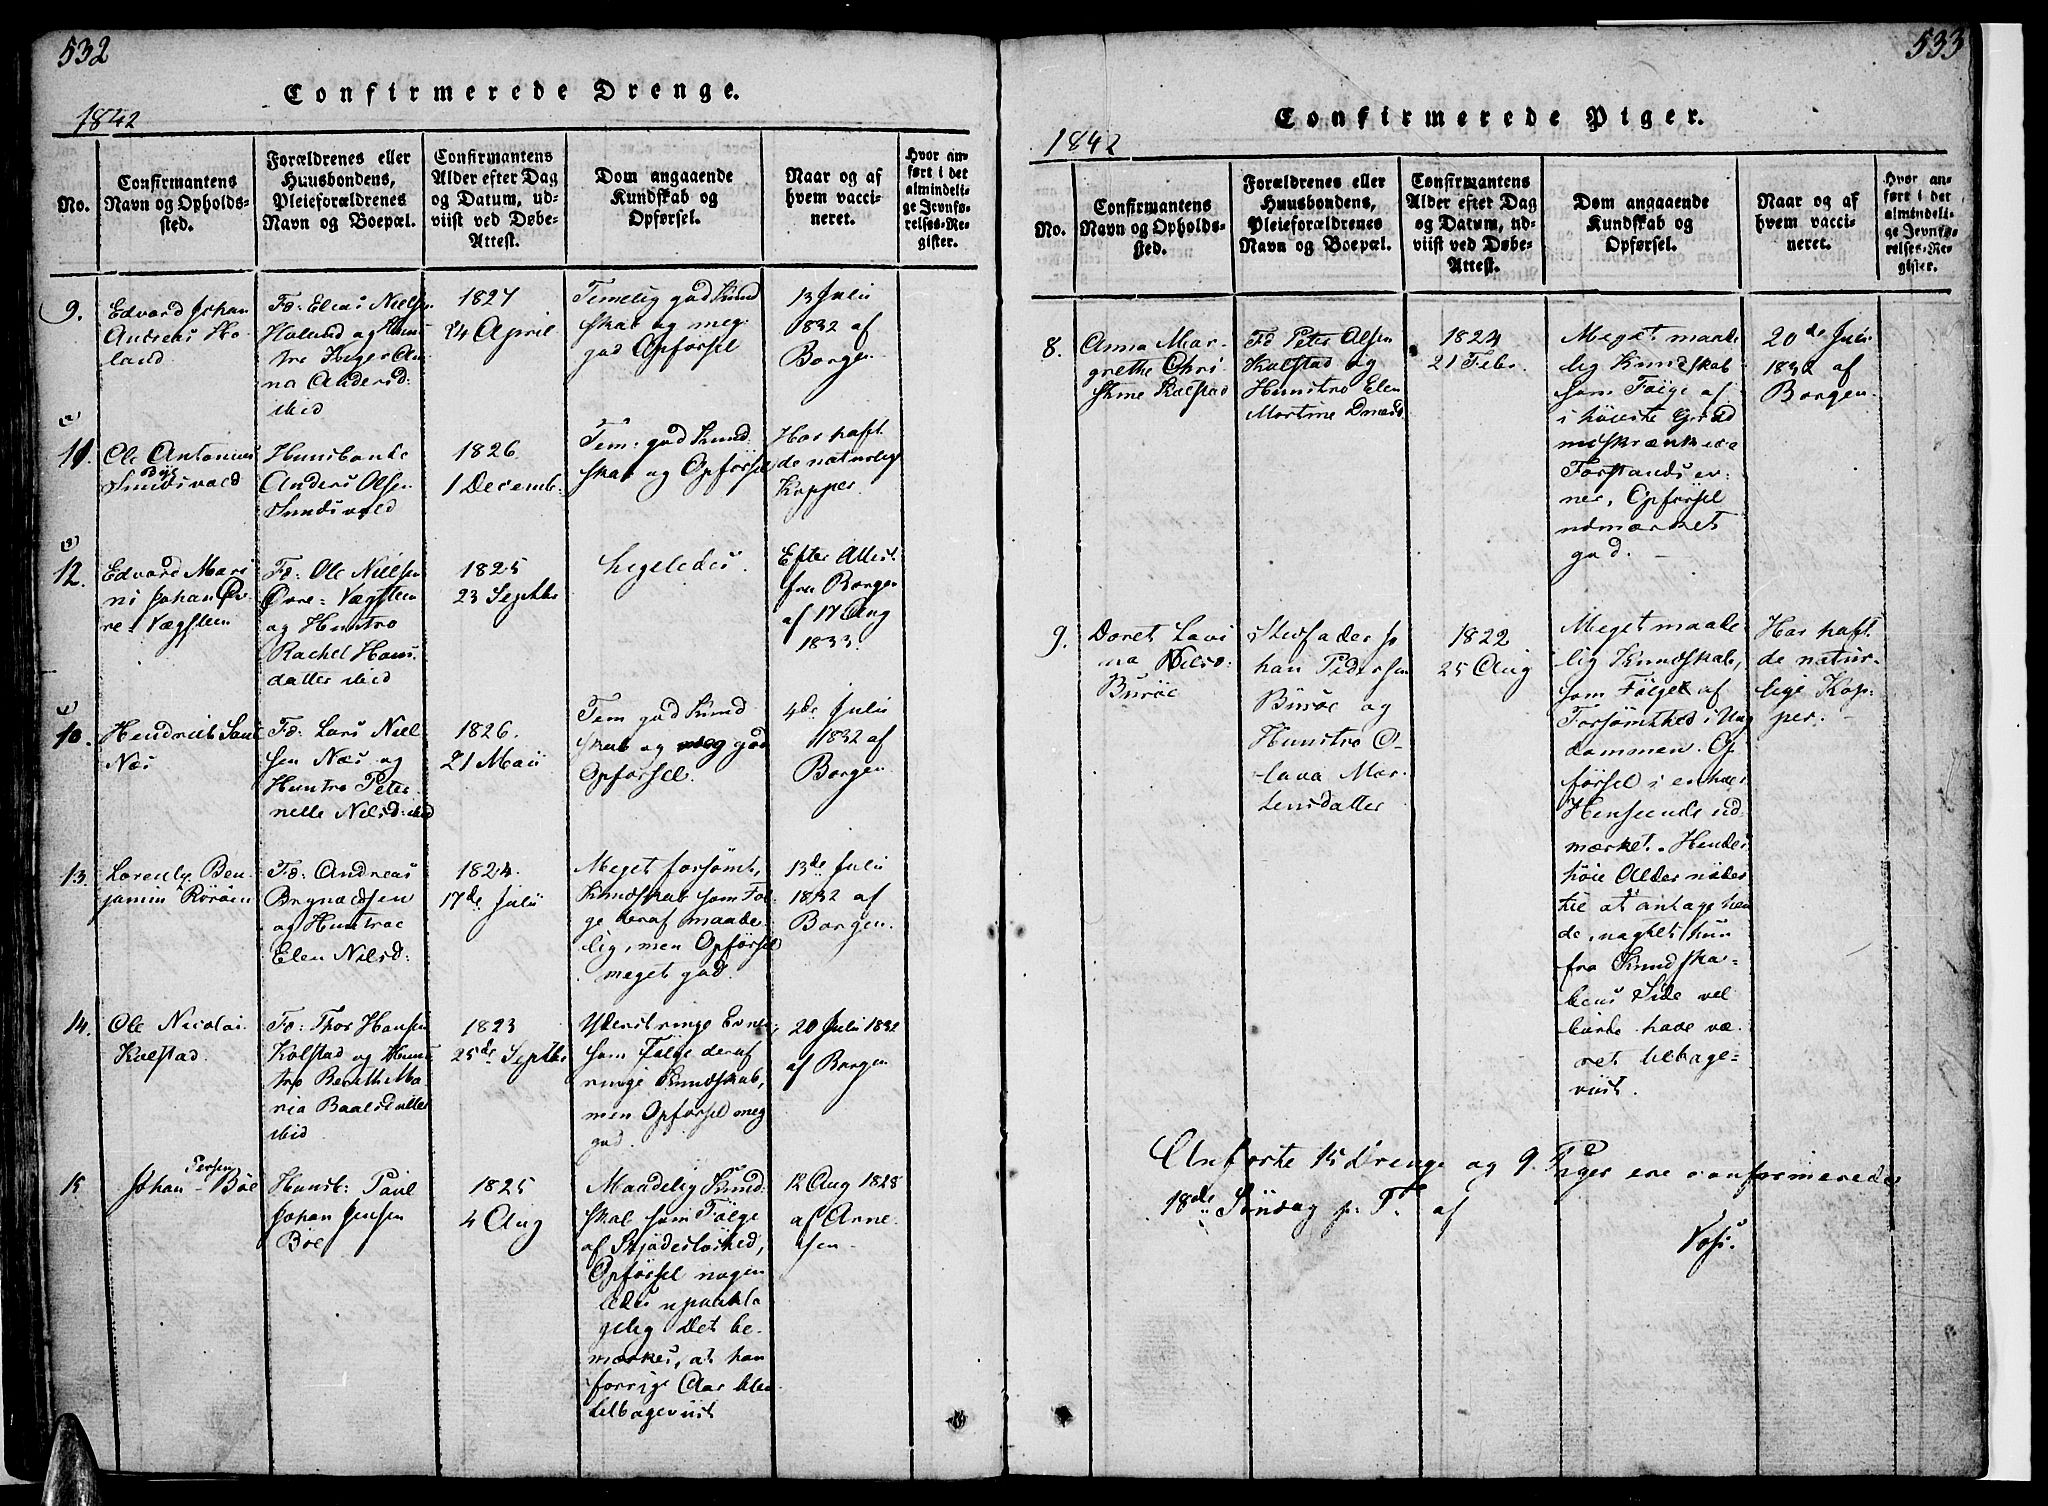 532
Confirmerede Drenge.
1842
No.
Confirmantens
Navn og Opholds-
sted.
Forældrenes eller
Huusbondens,
Pleieforældrenes
Navn og Boepæl.
Confirmantens
Alder efter Dag
og Datum, ud-
viist ved Døbe-
Attest.
Dom angaaende
Kundskab og
Opførsel.
Naar og af
hvem vacci-
neret.
Hvor an-
ført i det
almindeli-
ge Jevnfø-
relses-Re-
gister.
9.
Edvard Johan
Andreas Ho-
land
F: Elias Nielsen
Holand og Huus-
tro Inger An-
na Andersd
ibid
1827
24 April
Temelig god Kund
skab og meg
god Opførsel
13 Julii
1832 af
Borgen
11.
Ole Antonius
Sundsvold
Huusbonde
Anders Olsen
Sundsvold
1826
1 Decemb.
Tem: god Kund
skab og Opførsel
Har haft
de naturlig
Kopper
12.
Edvard Mari
ni Johan Øv
re-Vægsteen
F: Ole Nielsen
Øvre-Vægsteen
og Huustro
Rachel Hans
datter ibid
1825
23 Septbr
Ligeledes.
Efter Attest
fra Borgen
af 17 Aug
1833.
10.
Hendrik
Næs
F: Lars Niel
sen Næs og
Huustro Peter
nelle Nilsd: ibid
1826.
21 Maii
Tem god Kund
skab og meg god
Opførsel.
4de Julii
1832 af
Borgen
13.
Lorents Ben
jamin Rørøen
F: Andreas
Brynældsen
og Huustroe
Elen Nilsd:
1824.
17de Julii
Meget forsømt,
Kundskab som Føl-
ge deraf maade-
lig, men Opførsel
meget god.
13de Julii
1832 af
Borgen.
14.
Ole Nicolai
Kolstad.
F: Thor Hansen
Kolstad og Huus
tro Berith Ma
ria Baalsdatter
ibid
1823
25de Septbr
Yderst ringe Evner,
som Følge deraf
ringe Kundskab,
men Opførsel meg
god.
20 Julii 1832
af Borgen
15
Persen
Johan Böe
Huusb: Paul
Johan Jensen
Böe
1825
4 Aug
Maadelig Kund-
skab som Følge
af Skjødesløshed,
Opførsel nogen
ledes upaakla
gelig. Det be-
mærkes, at han
forrige Aar blev
tilbageviist
12 Aug 1828
af Arne-
sen
533
Confirmerede Piger.
1842
No.
Confirmantens
Navn og Opholds-
sted.
Forældrenes eller
Huusbondens,
Pleieforældrenes
Navn og Boepæl.
Confirmantens
Alder efter Dag
og Datum, ud-
viist ved Døbe-
Attest.
Dom angaaende
Kundskab og
Opførsel.
Naar og af
hvem vacci-
neret.
Hvor an-
ført i det
almindeli-
ge Jevnfø-
relses-Re-
gister.
8.
Anna Mar-
grethe Chri
stine Kolstad
F Peter Olsen
Kolstad og
Huustro Elen
Mortine
1824
21 Febr
Meget maade
lig Kundskab
som Følge af
i høieste Grad
indskrænkede
Forstandsev-
ner, Opførsel
udmærket
god.
20de Julii
1832 af
Borgen
9.
Doret Lovi
na Nilsd:
Buröe
Stedfader Jo
han Pedersen
Buröe og
Huustro O-
lava Mor-
tensdatter
1822
25 Aug
Meget maade-
lig Kundskab,
som Følge af
Forsømthed i Ung
dommen. Op
førsel i enhver
Henseende ud-
mærket. Hendes
høie Alder nøder
til at antage hen
de, uagtet hun
fra Kundska-
bens Side vel
burde have væ-
ret tilbage-
viist.
Har haft
de natur-
lige Kop-
per.
Anførte 15 Drenge og 9 Piger ere confirmerede
18de Søndag p: T: af
Voss.